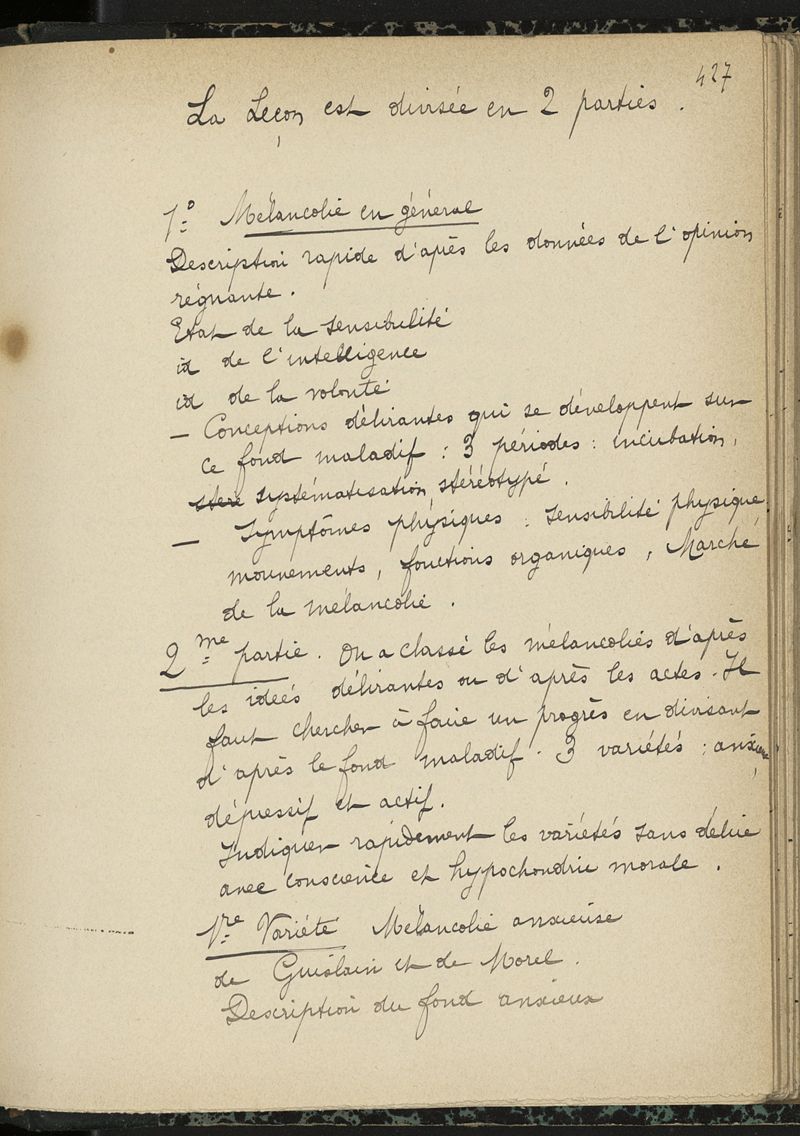 427
La Leçon est divisée en 2 parties.
1º Mélancolie en général
Description rapide d'après les données de l'opinion
régnante.
Etat de la sensibilité
id de l'intelligence
id de la volonté
— Conceptions délirantes qui se développent sur
ce fond maladif : 3 périodes : incubation,
stere systématisation, stéréotypé.
— Symptômes physiques : sensibilité physique,
mouvements, fonctions organiques, Marche
de la mélancolie.
2me partie. On a classé les mélancolies d'après
les idées délirantes ou d'après les actes. Il
faut chercher à faire un progrès en divisant
d'après le fond maladif. 3 variétés : anxieux,
dépressif et actif.
Indiquer rapidement les variétés sans délire
avec conscience et hypochondrie morale.
1re Variété Mélancolie anxieuse
de Guislain et de Morel.
Description du fond anxieux